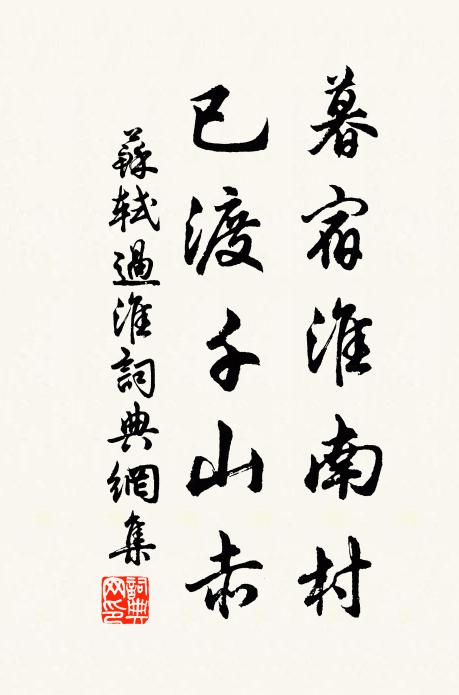 暮宿淮南村
已渡千山赤
蘇軾過淮詞典網集
詞典
网印